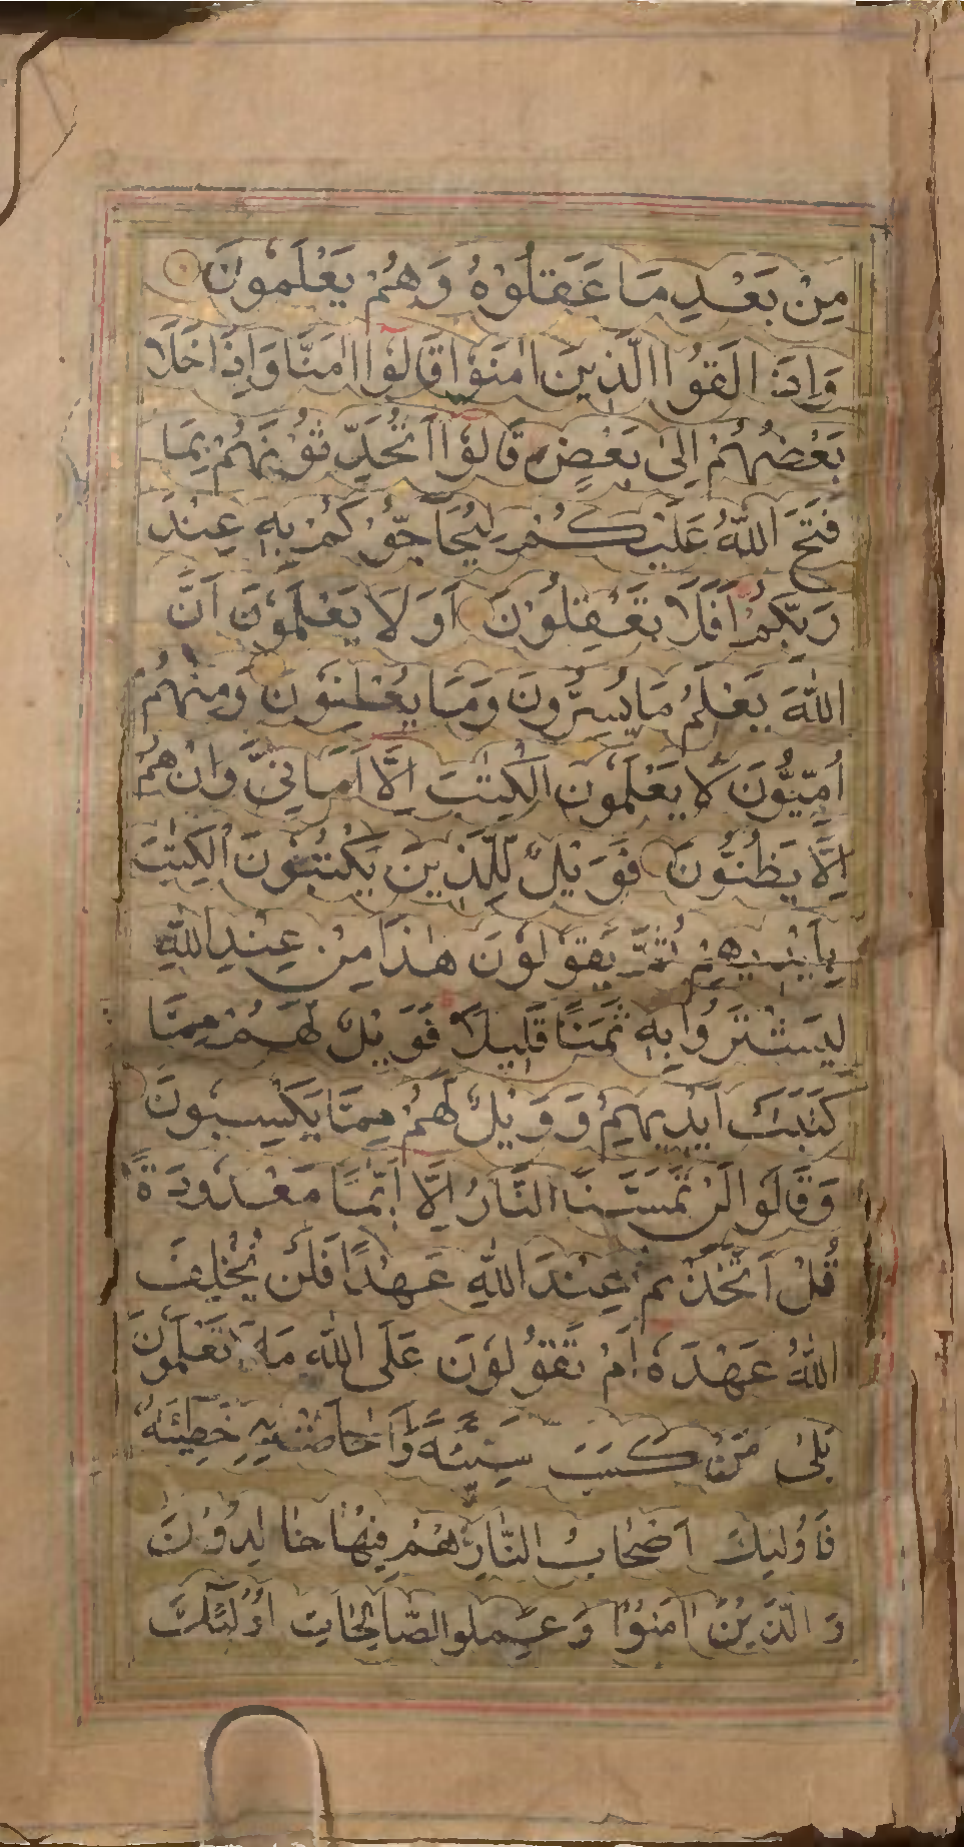 مِنْ بَعْدِ مَا عَقَلُوْهُ وَهُمْ يَعْلَمُوْنَ
وَاِذَا لَقُوا الَّذِينَ اٰمَنُوْا قَالُوْا اٰمَنَّا وَاِذَا خَلَا
بَعْضُهُمْ اِلىٰ بَعْضٍ قَالُوْا اَتُحَدِّثُوْنَهُمْ بِمَا
فَتَحَ اللّٰهُ عَلَيْكُمْ لِيُحَاجُّوْكُمْ بِهٖ عِنْدَ
رَبِّكُمْ اَفَلَا تَعْقِلُوْنَ اَوَلَا يَعْلَمُوْنَ اَنَّ
اللّٰهَ يَعْلَمُ مَا يُسِرُّونَ وَمَا يُعْلِنُوْنَ وَمِنْهُمْ
اُمِّيُّوْنَ لَا يَعْلَمُوْنَ الْكِتٰبَ اِلَّا اَمَانِيَّ وَاِنْ هُمْ
اِلَّا يَظُنُّوْنَ فَوَيْلٌ لِلَّذِيْنَ يَكْتُبُوْنَ الْكِتٰبَ
بِاَيْدِيهِمْ ثُمَّ يَقُوْلُوْنَ هٰذَا مِنْ عِنْدِ اللّٰهِ
لِيَشْتَرُوْا بِهٖ ثَمَنًا قَلِيلًا فَوَيْلٌ لَهُمْ مِمَّا
كَتَبَتْ اَيْدِيهِمْ وَوَيْلٌ لَهُمْ مِمَّا يَكْسِبُوْنَ
وَقَالُوْا لَنْ تَمَسَّنَا النَّارُ اِلَّا اَيَّامًا مَعْدُوْدَةً
قُلْ اَتَّخَذْتُمْ عِنْدَ اللّٰهِ عَهْدًا فَلَنْ يُخْلِفَ
اللّٰهُ عَهْدَهٗ اَمْ تَقُوْلُوْنَ عَلَى اللّٰهِ مَا لَا تَعْلَمُوْنَ
بَلىٰ مَنْ كَسَبَ سَيِّئَةً وَاَحَاطَتْ بِهٖ خَطِيْئَتُهٗ
فَاُولٰئِكَ اَصْحَابُ النَّارِ هُمْ فِيْهَا خَالِدُوْنَ
وَالَّذِيْنَ اٰمَنُوْا وَعَمِلُوا الصَّالِحَاتِ اُولٰئِكَ